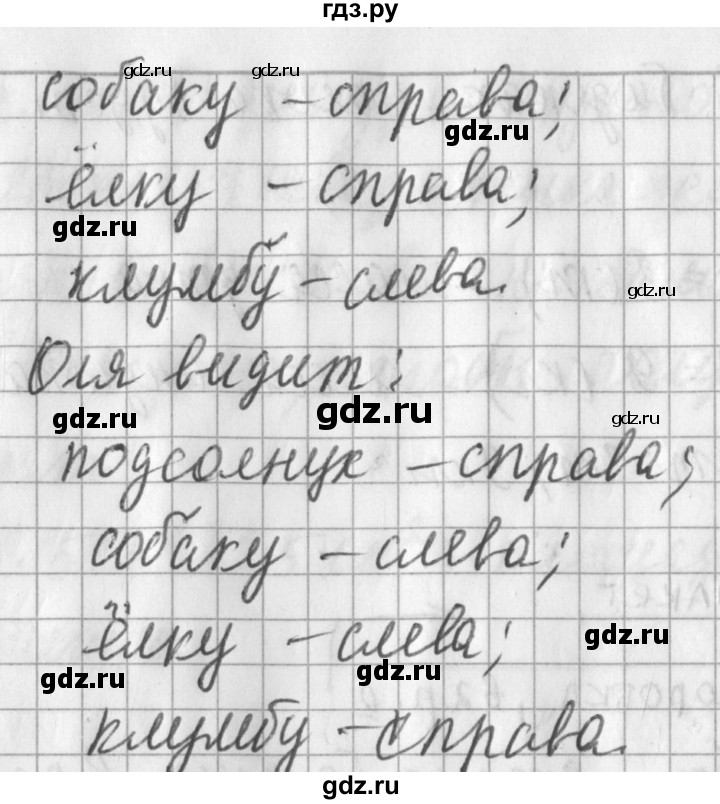 гдз.ру
собаку – справа;
ёлку – справа;
клумбу – слева.
Оля видит:
подсолнух – справа;
собаку – слева;
ёлку – слева;
клумбу – справа.
gdz.ru
gdz.ru
gdz.ru
gdz.ru
gdz.ru
gdz.ru
gdz.ru
gdz.ru
gdz.ru
gdz.ru
gdz.ru
gdz.ru